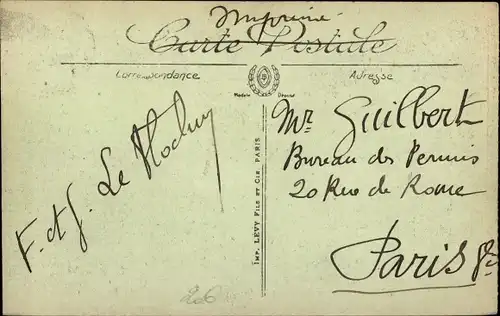 Imprimé
Carte Postale
Correspondance
Adresse
Modèle Déposé
F. et J. Le
IMP. LEVY FILS ET CIE PARIS
Mr Guilbert
Bureau des Permis
20 Rue de Rome
Paris 8e
206